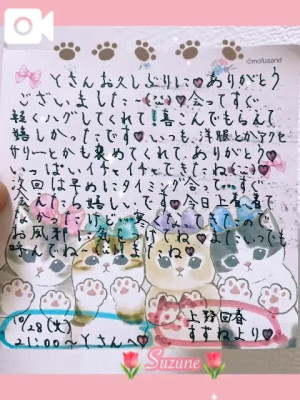 ©mofusand
とさんお久しぶりに♥ありがとう
ございました
会ってすぐ
軽くハグしてくれて!喜こんでもらえて
嬉しかったです♥いつも、洋服とかアクセ
サリーとかも褒めてくれて、ありがとう♥
いっぱいイチャイチャできたね
次回は早めにタイミング合て
すぐ
会えたら嬉しいです♥今日
なかったけど
寒くなってきたので
お風邪
気
ね♥またいつでも
呼んでね
10/28(火)
21:00〜とさんへ♥
上野回春
すずねより♥
Suzune